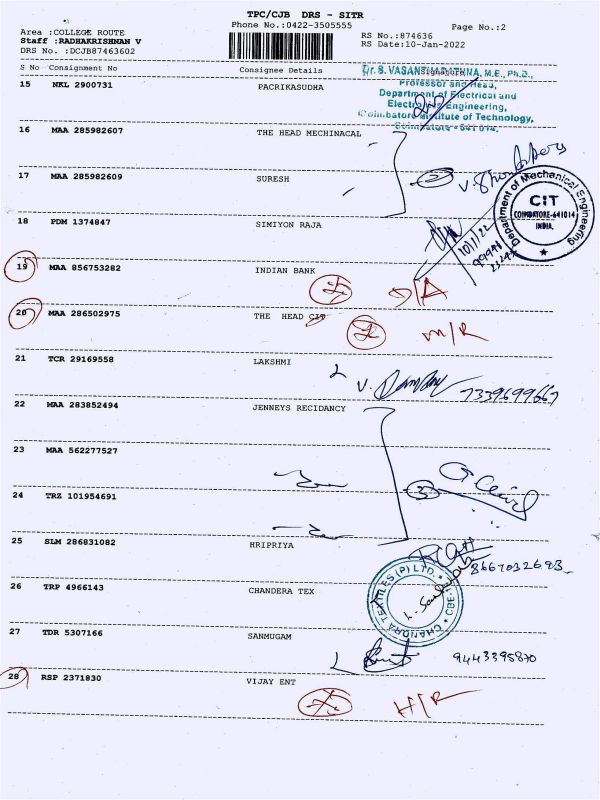 TPC/CJB DRS - SITR
Phone No.:0422-3505555
Page No.:2
Area :COLLEGE ROUTE
Staff :RADHAKRISHNAN V
DRS No. :DCJB87463602
RS No.:874636
RS Date:10-Jan-2022
S No Consignment No Consignee Details Signature
Dr. S. VASANTHARATHNA, M.E., Ph.D.,
Professor and Head,
Department of Electrical and
Electronics Engineering,
Coimbatore Institute of Technology,
Coimbatore - 641 014.
15 NKL 2900731 PACRIKASUDHA
16 MAA 285982607 THE HEAD MECHINACAL
17 MAA 285982609 SURESH
2
Department of Mechanical Engineering
CIT
COIMBATORE-641014
INDIA.
18 PDM 1374847 SIMIYON RAJA
10/1/22
19 MAA 856753282 INDIAN BANK
20 MAA 286502975 THE HEAD CIT
M/R
21 TCR 29169558 LAKSHMI
7339699667
22 MAA 283852494 JENNEYS RECIDANCY
23 MAA 562277527
24 TRZ 101954691
25 SLM 286831082 HRIPRIYA
8667032693
26 TRP 4966143 CHANDERA TEX
CHANDRA TEXTILES (P) LTD.
CBE
27 TDR 5307166 SANMUGAM
9443395870
28 RSP 2371830 VIJAY ENT
H/R